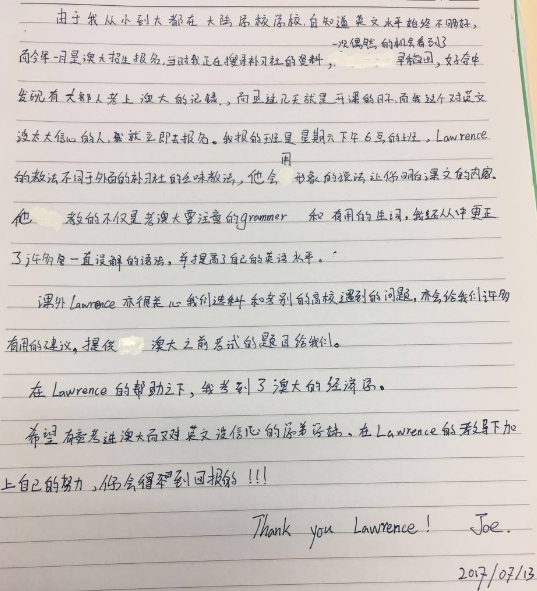 由于我从小到大都在大陆原校原校,自知道英文水平始终不够好,
一次偶然的机会看到了
而今年一月是澳大招生报名,当时我正在搜寻补习社的资料,
发现有大部人考上澳大的记录,而且过几天就是开课的日子,而我这个对英文
没太大信心的人,就立即去报名。我报的班是星期六下午6点的班,Lawrence
用
的教法不同于外面的补习社的乏味教法,他会形象的说法让你明白课文的内容。
他教的不仅是考澳大要注意的grammer 和有用的生词,我还从中更正
了许多我一直误解的语法,并提高了自己的英语水平。
课外Lawrence亦很关心我们选科和考别的高校遇到的问题,亦会给我们许多
有用的建议,提供澳大之前考试的题目给我们。
在Lawrence的帮助之下,我考到了澳大的经济系。
希望有意考进澳大而又对英文没信心的学弟学妹,在Lawrence的教导下加
上自己的努力,你会得到回报的!!!
Thank you Lawrence! Joe.
2017/07/13